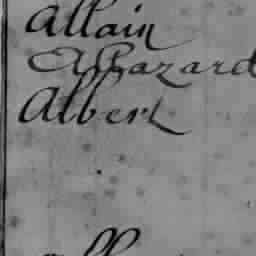 Allain
Alhazard
Albert